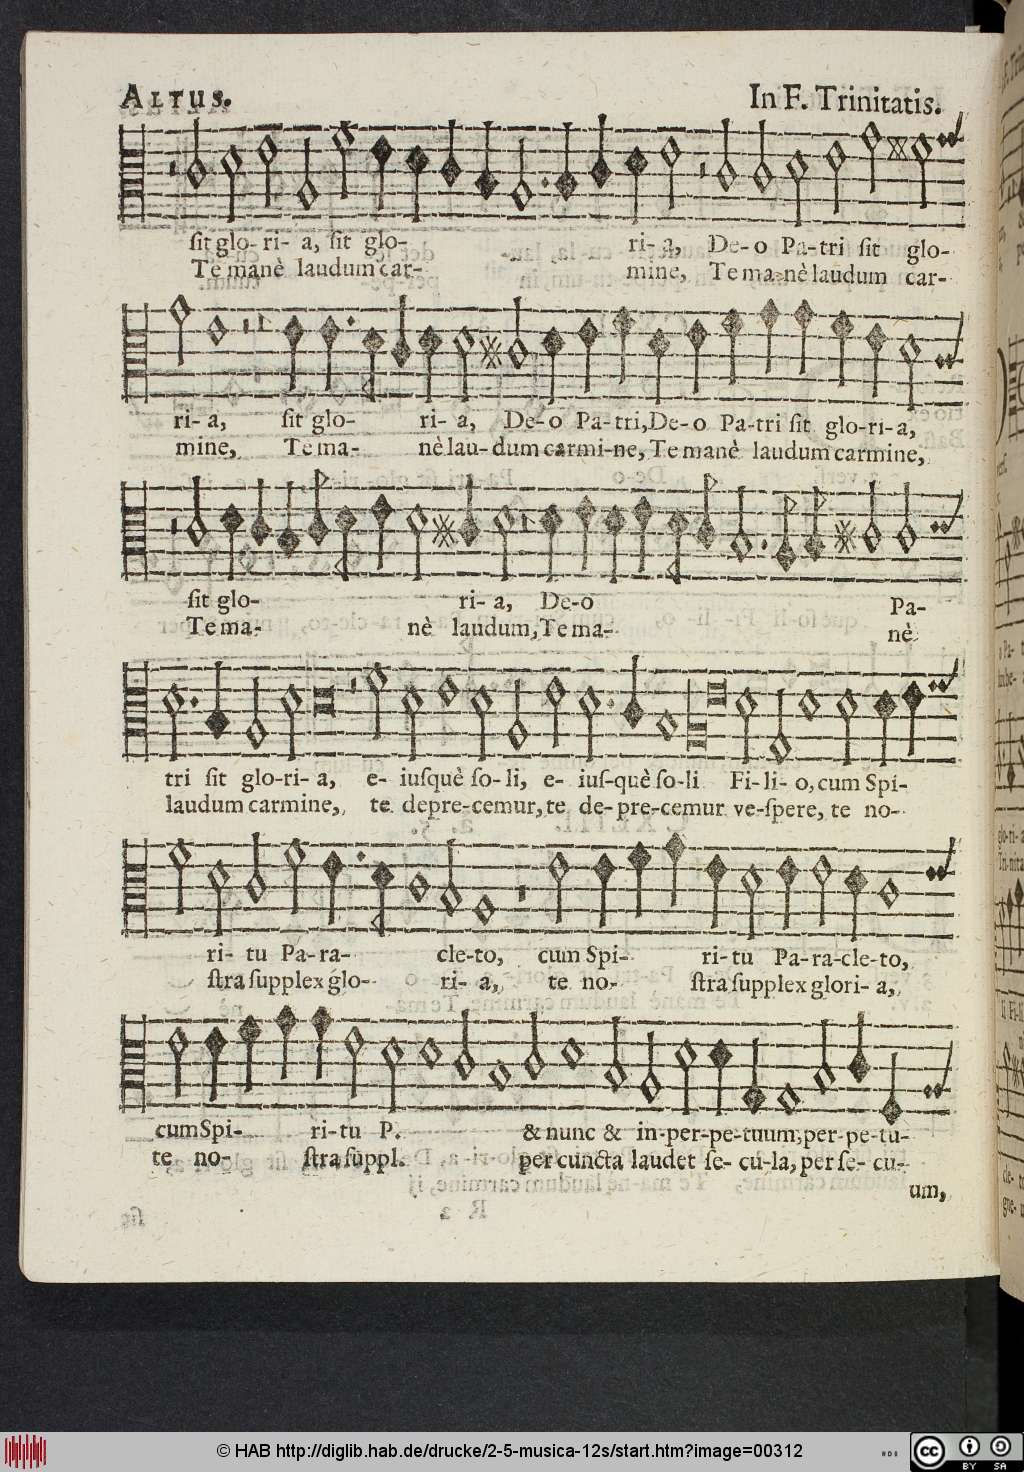 ALTUS.
In F. Trinitatis.
ſit glo- ri- a, ſit glo- ri- a, De-o Pa-tri ſit glo-
Te manè laudum car- mine, Te ma-nè laudum car-
ri- a, ſit glo- ri- a, De-o Pa-tri, De-o Pa-tri ſit glo-ri-a,
mine, Te ma- nè lau- dum carmi-ne, Te manè laudum carmine,
ſit glo- ri- a, De-o Pa-
Te ma- nè laudum, Te ma- nè
tri ſit glo-ri- a, e- iusquè ſo-li, e- iuſ-què ſo-li Fi-li- o, cum Spi-
laudum carmine, te depre-cemur, te de-pre-cemur ve-ſpere, te no-
ri- tu Pa-ra- cle-to, cum Spi- ri-tu Pa-ra-cle-to,
ſtra ſupplex glo- ri- a, te no- ſtra ſupplex glori- a,
cum Spi- ri-tu P. & nunc & in-per-pe-tuum, per-pe-tu-
te no- ſtra ſuppl. per cuncta laudet ſe- cu-la, per ſe- cu-
um,
© HAB http://diglib.hab.de/drucke/2-5-musica-12s/start.htm?image=00312
cc BY SA